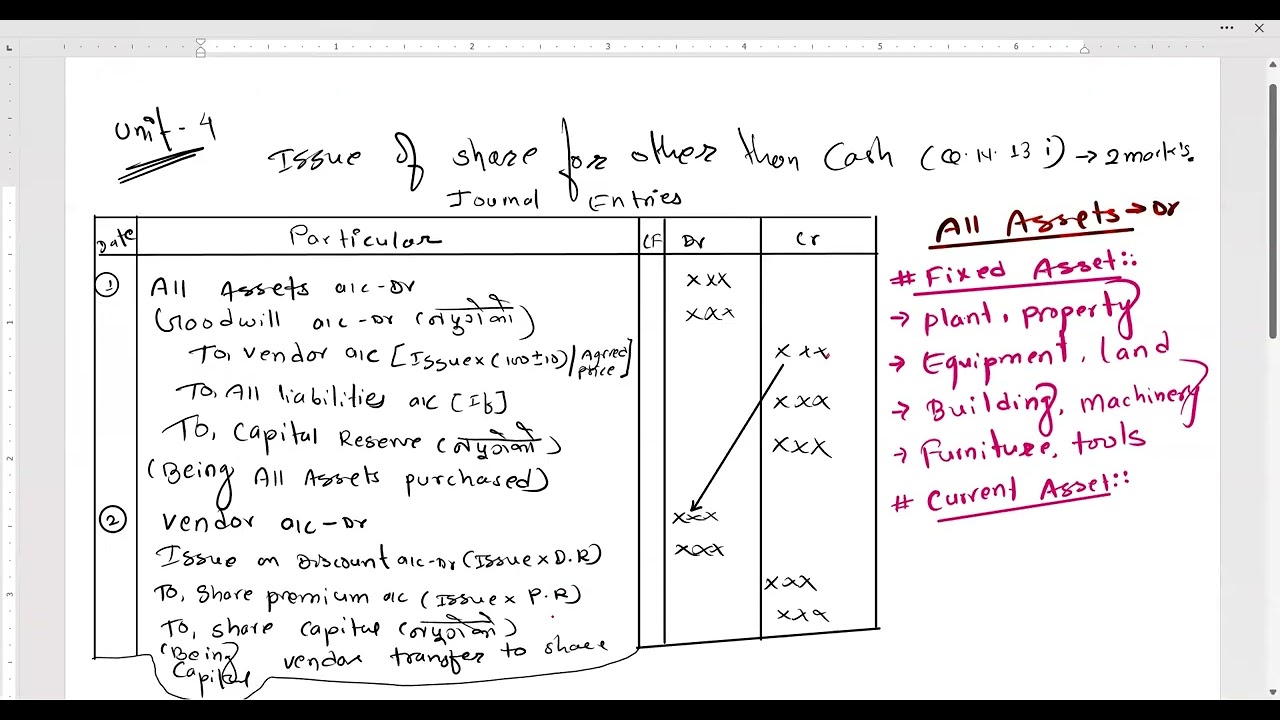 Unit-4
Issue Of share for other then Cash (Q.N.13 i) → 2 mark's.
Journal Entries
Date Particular LF Dr Cr
① All Assets a/c-Dr xxx
Goodwill a/c-Dr ( ) xxx
To, Vendor a/c [Issue×(100±10)/Agreed price] xxx
To, All liabilities a/c [If] xxx
To, Capital Reserve ( ) xxx
(Being All Assets purchased)
② Vendor a/c-Dr xxx
Issue on Discount a/c-Dr (Issue×D.R) xxx
To, Share premium a/c (Issue× P.R) xxx
To, share capital ( ) xxx
(Being vendor transfer to share
Capital
All Assets→Dr
# Fixed Asset::
→ plant, property
→ Equipment, land
→ Building, machinery
→ Furniture, tools
# Current Asset::